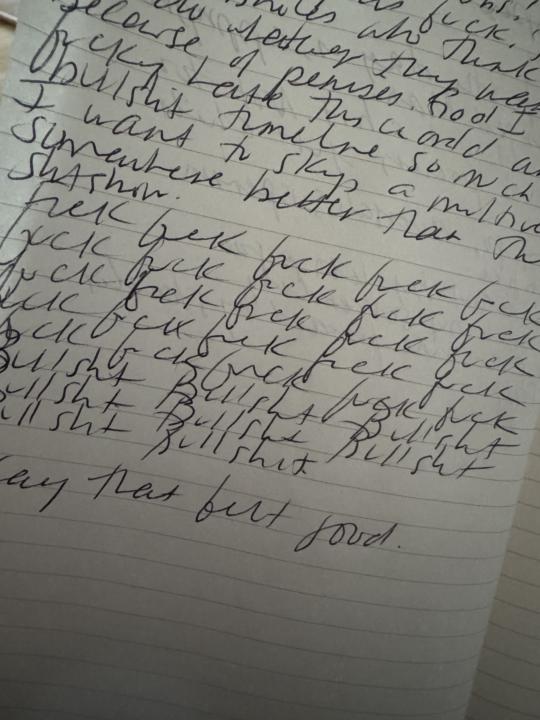 fuck.
who think
whether they
because of penises. God I
fucking hate this world an
bullshit timeline so much
I want to skip a multive
somewhere better than th
shitshow.
fuck fuck fuck fuck fuck
fuck fuck fuck fuck fuck
fuck fuck fuck fuck fuck
fuck fuck fuck fuck fuck
fuck fuck fuck fuck fuck
Bullshit Bullshit Bullshit
Bullshit Bullshit Bullshit
Bullshit Bullshit
kay that felt good.